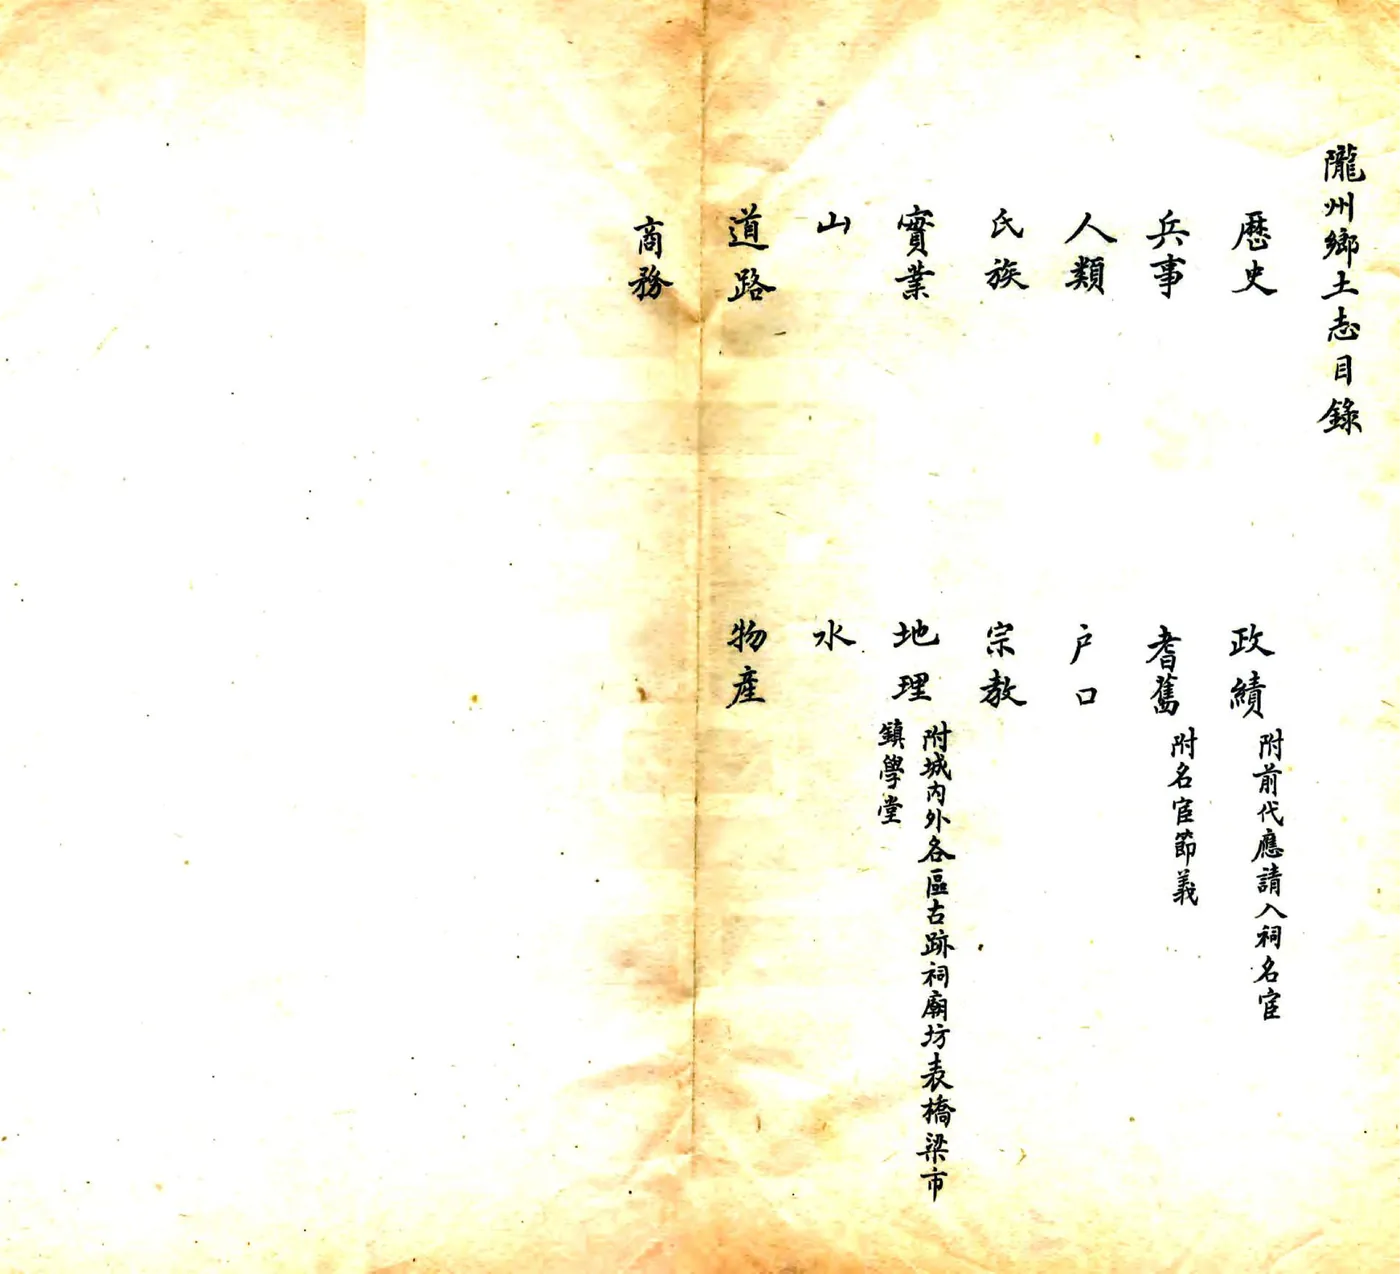 隴州鄉土志目錄
歷史
政績 附前代應請入祠名宦
兵事
耆舊 附名宦節義
人類
户口
氏族
宗教
實業
地理 附城内外各區古跡祠廟坊表橋梁市
鎮學堂
山
水
道路
物產
商務